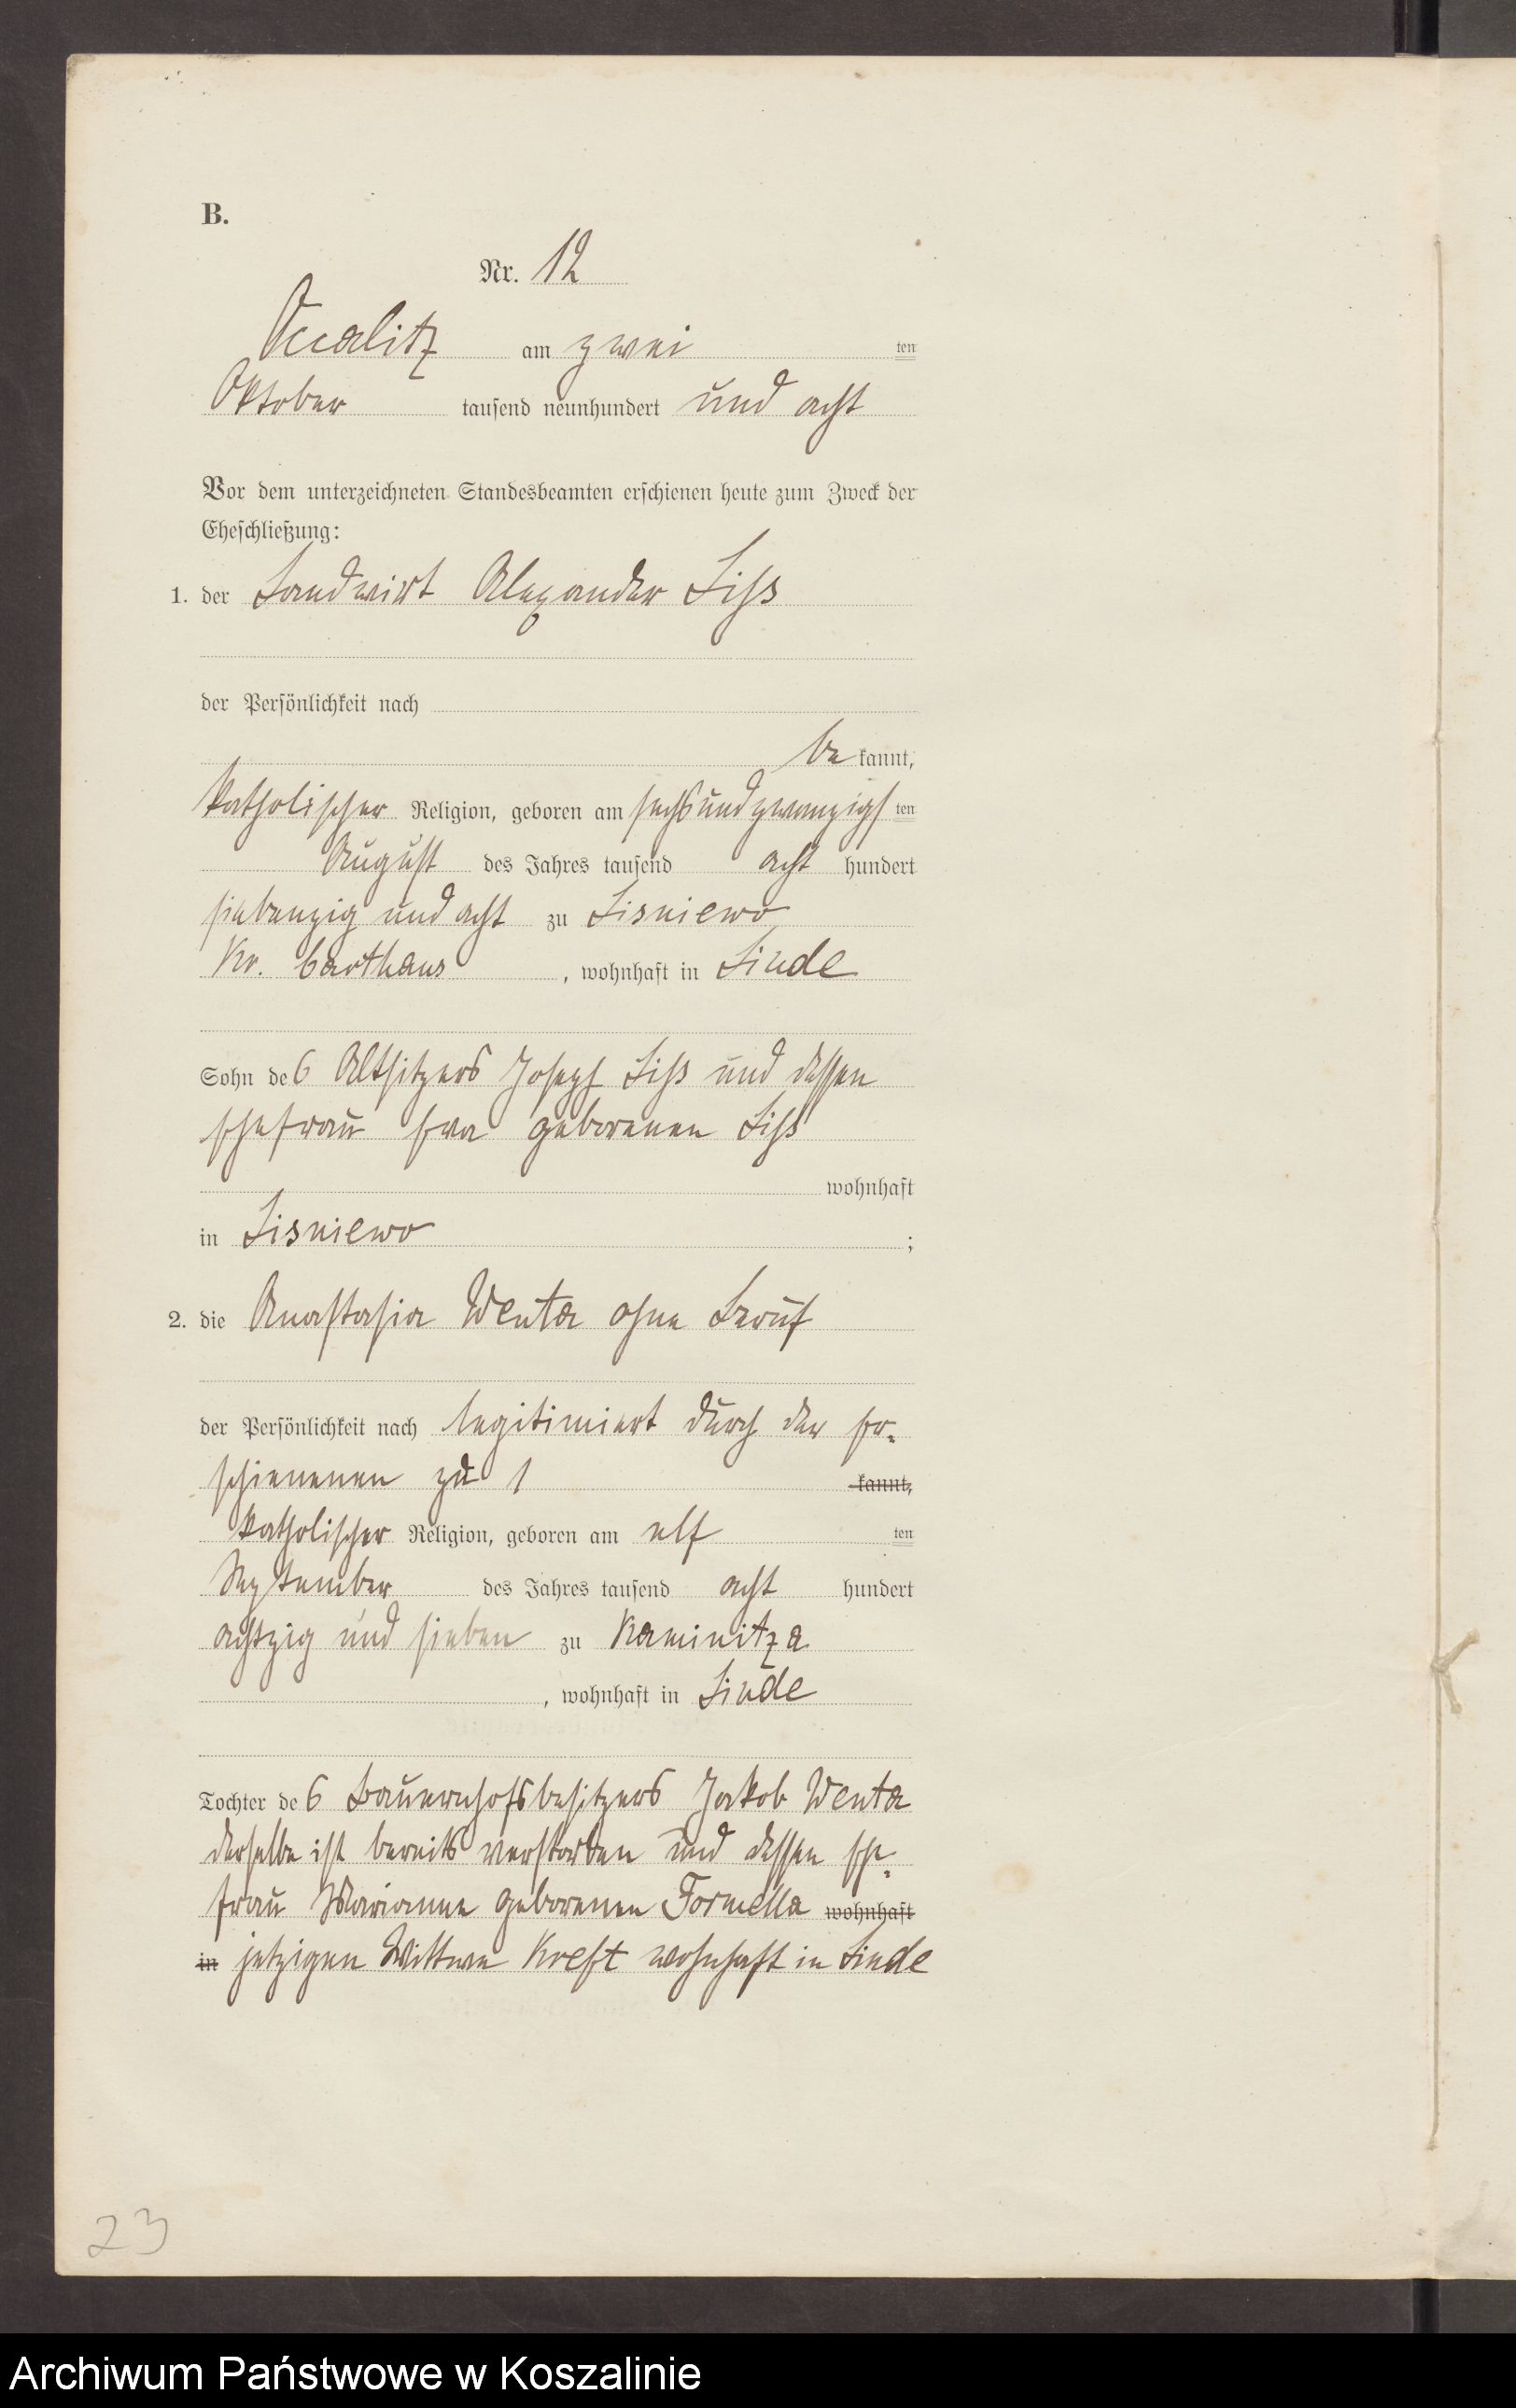 B.
Nr. 12
Occalitz am zwei ten
Oktober tausend neunhundert und acht
Vor dem unterzeichneten Standesbeamten erschienen heute zum Zweck der
Eheschließung:
1. der Landwirt Alexander Liss
der Persönlichkeit nach
be kannt,
katholischer Religion, geboren am sechsundzwanzigs ten
August des Jahres tausend acht hundert
siebenzig und acht zu Lisniewo
Kr. Carthaus, wohnhaft in Linde
Sohn des Altsitzers Joseph Liss und dessen
Ehefrau Eva geborenen Liss
wohnhaft
in Lisniewo ;
2. die Anastasia Wenta ohne Beruf
der Persönlichkeit nach legitimiert durch der Er-
schienenen zu 1 kannt,
katholischer Religion, geboren am elf ten
September des Jahres tausend acht hundert
achtzig und sieben zu Kaminitza
, wohnhaft in Linde
Tochter des Bauernhofsbesitzers Jakob Wenta
derselbe ist bereits verstorben und dessen Ehe-
frau Marianne geborenen Formella wohnhaft
in jetzigen Wittwe Kreft wohnhaft in Linde
23
Archiwum Państwowe w Koszalinie